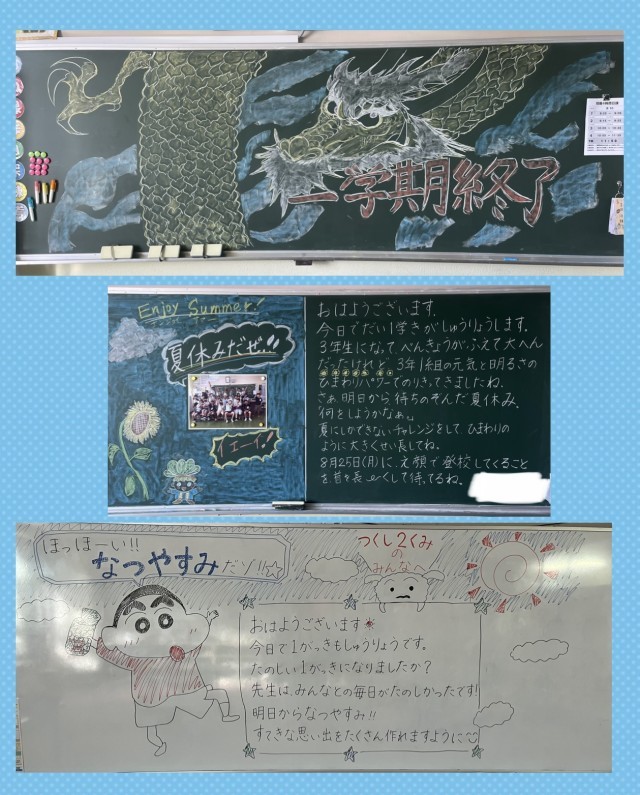 一学期終了
Enjoy Summer!
夏休みだぜ!!
イエーイ!!
おはようございます。
今日でだい1学きがしゅうりょうします。
3年生になって、べんきょうがふえて大へん
だったけれど、3年1組の元気と明るさの
ひまわりパワーでのりきってきましたね。
さぁ、明日から待ちのぞんだ夏休み。
何をしようかなぁ。
夏にしかできないチャレンジをして、ひまわりの
ように大きくせい長してね。
8月25日(月)に、え顔で登校してくること
を首を長〜くして待ってるね。
ほっほーい!!
なつやすみだゾ!!☆
つくし2くみ
の
みんなへ
おはようございます☀
今日で1がっきもしゅうりょうです。
たのしい1がっきになりましたか?
先生は、みんなとの毎日がたのしかったです!
明日からなつやすみ!!
すてきな思い出をたくさん作れますように☺